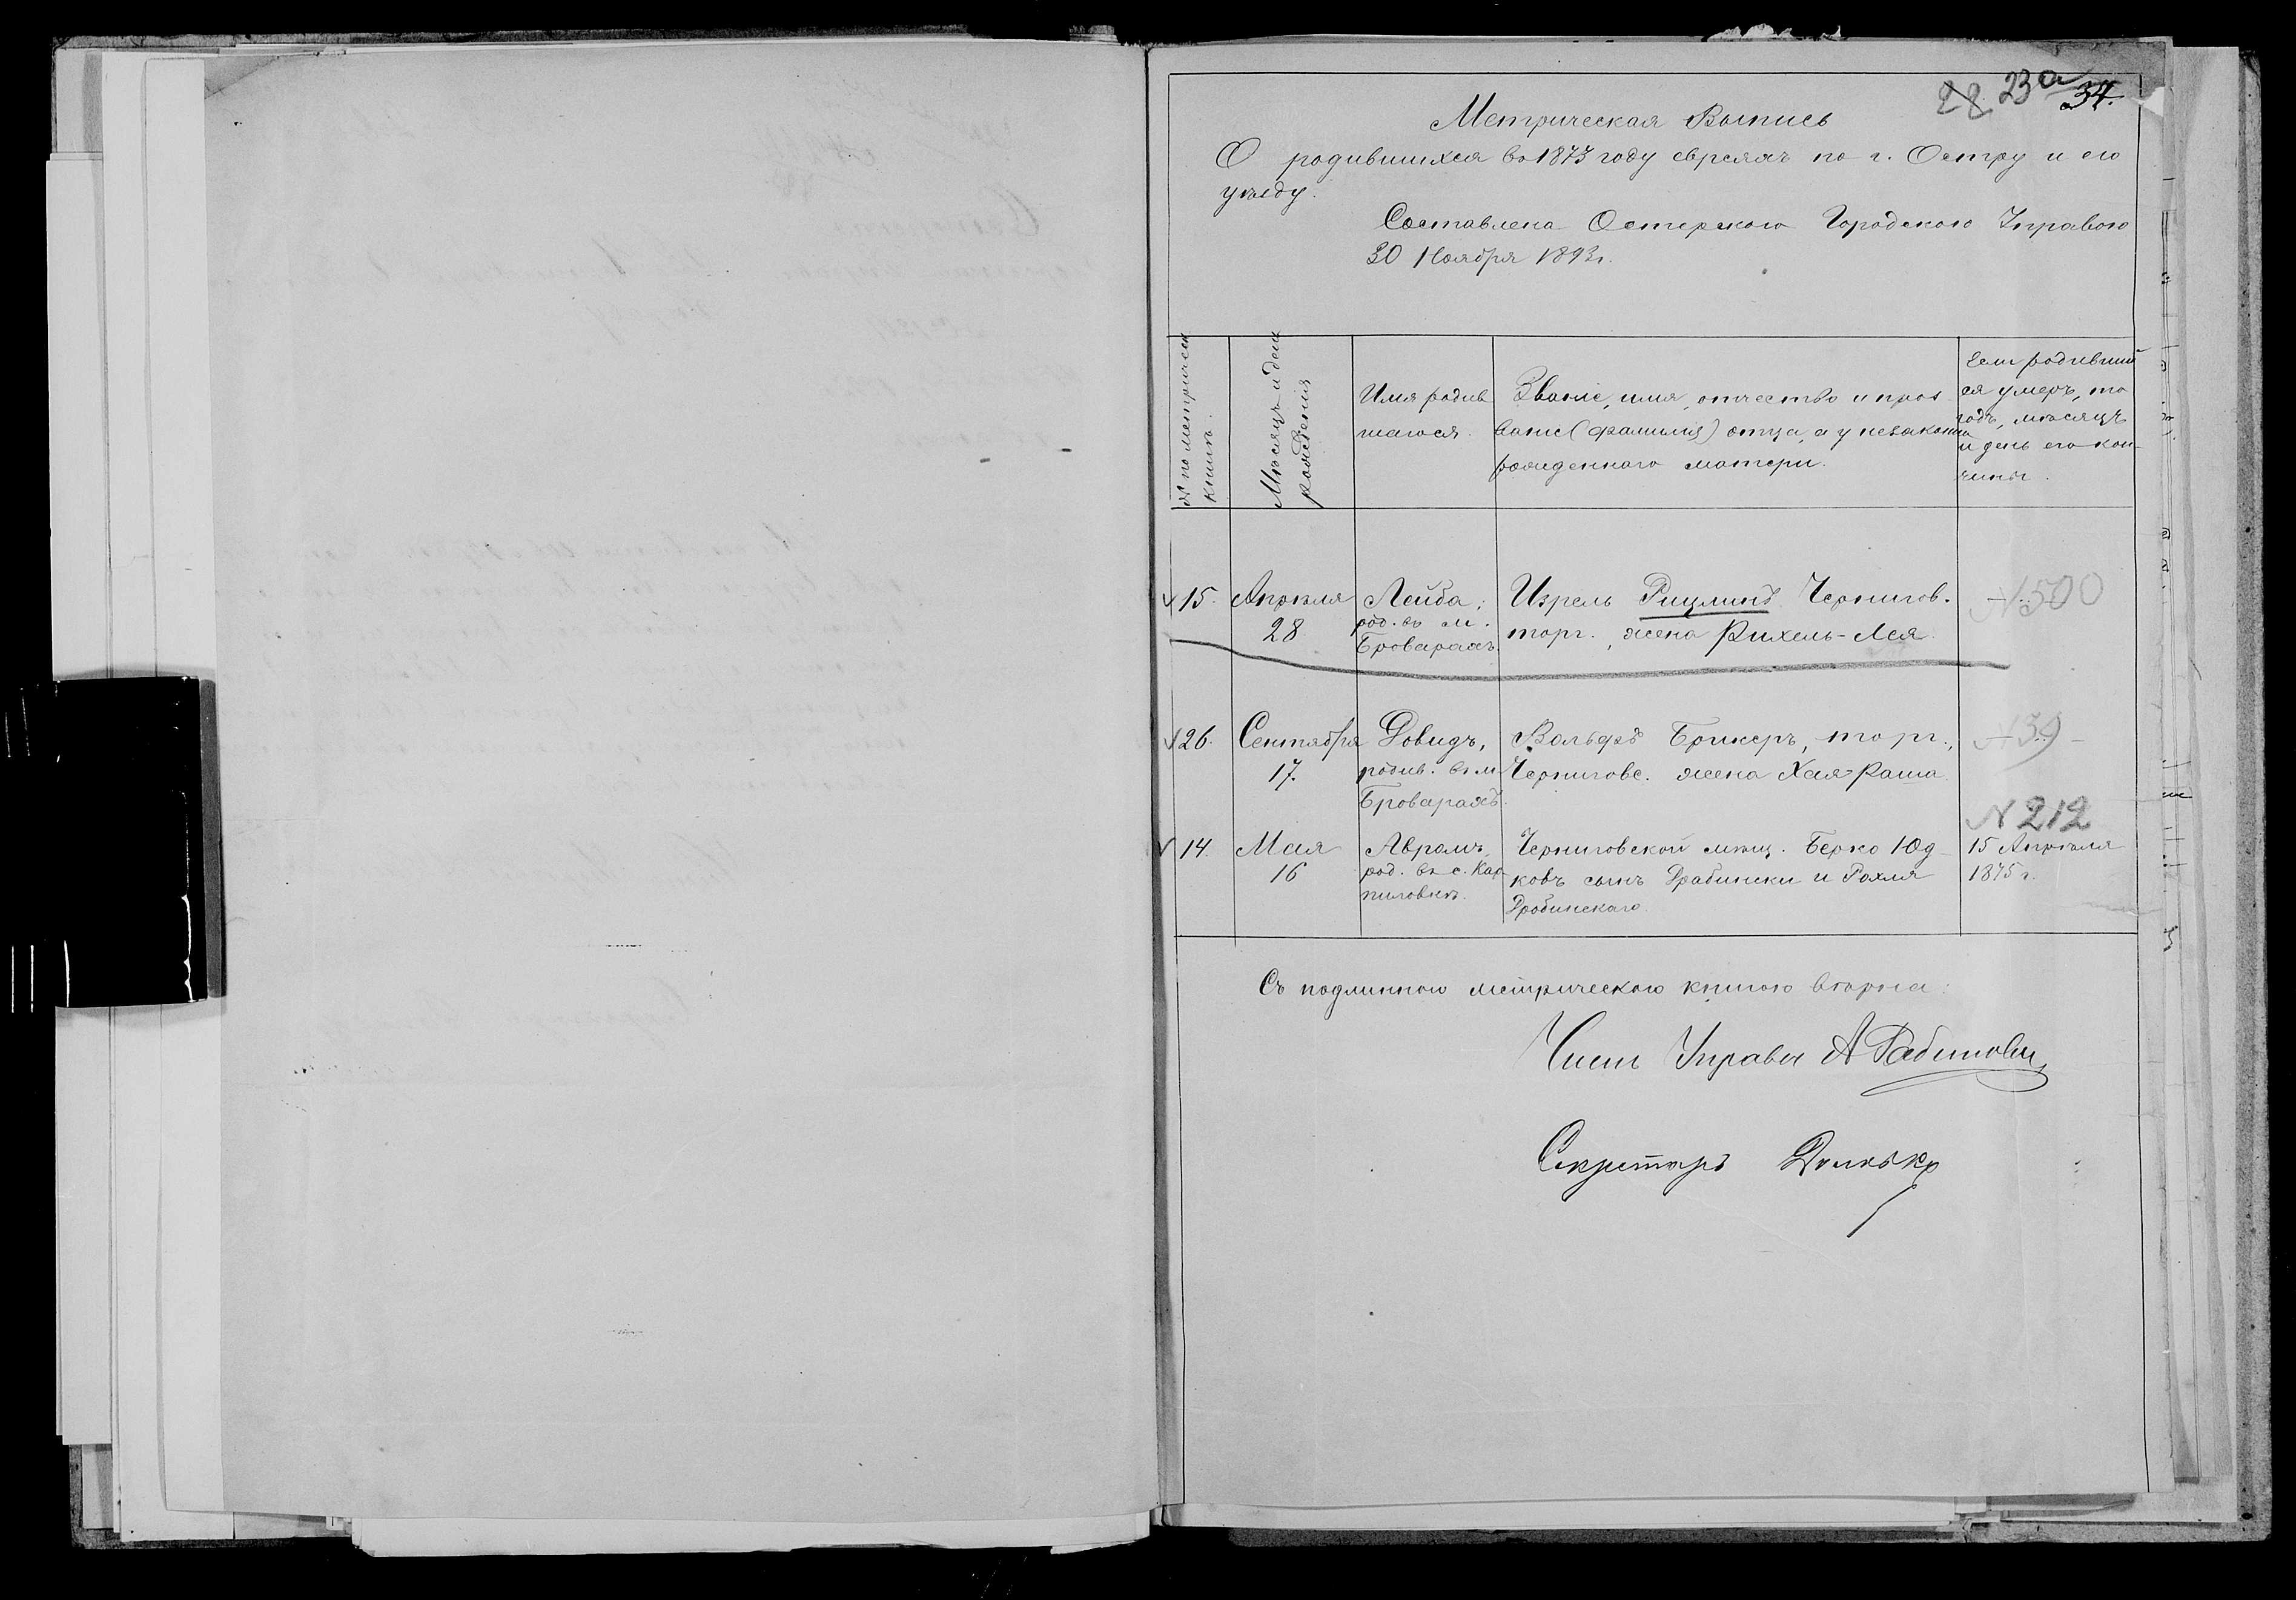 28 23а 34.
Метрическая Выпись
О родившихся въ 1873 году евреяхъ по г. Остру и его
уѣзду.
Составлена Остерскою Городскою Управою
30 Ноября 1893 г.
№ по метрическ
книгѣ.
Мѣсяцъ и день
рожденія
Имя родив
шагося.
Званіе, имя, отчество и проз
ваніе (фамилія) отца, а у незаконно
рожденнаго матери.
Если родивший
ся умеръ, то
годъ, мѣсяцъ
и день его кон-
чины.
15. Апрѣля 28
Лейба,
род. въ м.
Броварахъ.
Изрель Рицлинъ Чернигов.
торг., жена Рихель-Лея.
№ 500
26. Сентября 17.
Довидъ,
родив. въ м.
Броварахъ.
Вольфъ Брикеръ, торг.,
Черниговс. жена Хая Раша.
№ 39
14. Мая 16
Аврамъ,
род. въ с. Кар
пиловкѣ.
Черниговской мѣщ. Берко Юд-
ковъ сынъ Драбински и Рохля
Дробинскаго.
№ 212
15 Апрѣля
1875 г.
Съ подлинною метрическою книгою вѣрна:
Членъ Управы А Рабинович
Секретарь